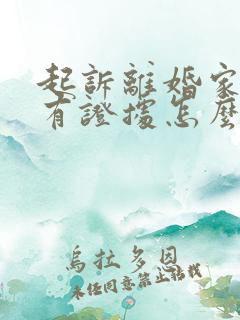 起訴離婚家
有證據怎麼
烏拉多恩
未經同意禁止轉載